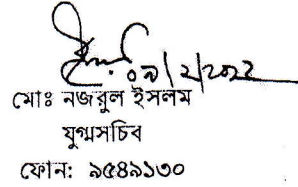 ০৯/২/২০২২
মোঃ নজরুল ইসলম
যুগ্মসচিব
ফোন: ৯৫৪৯১৩০